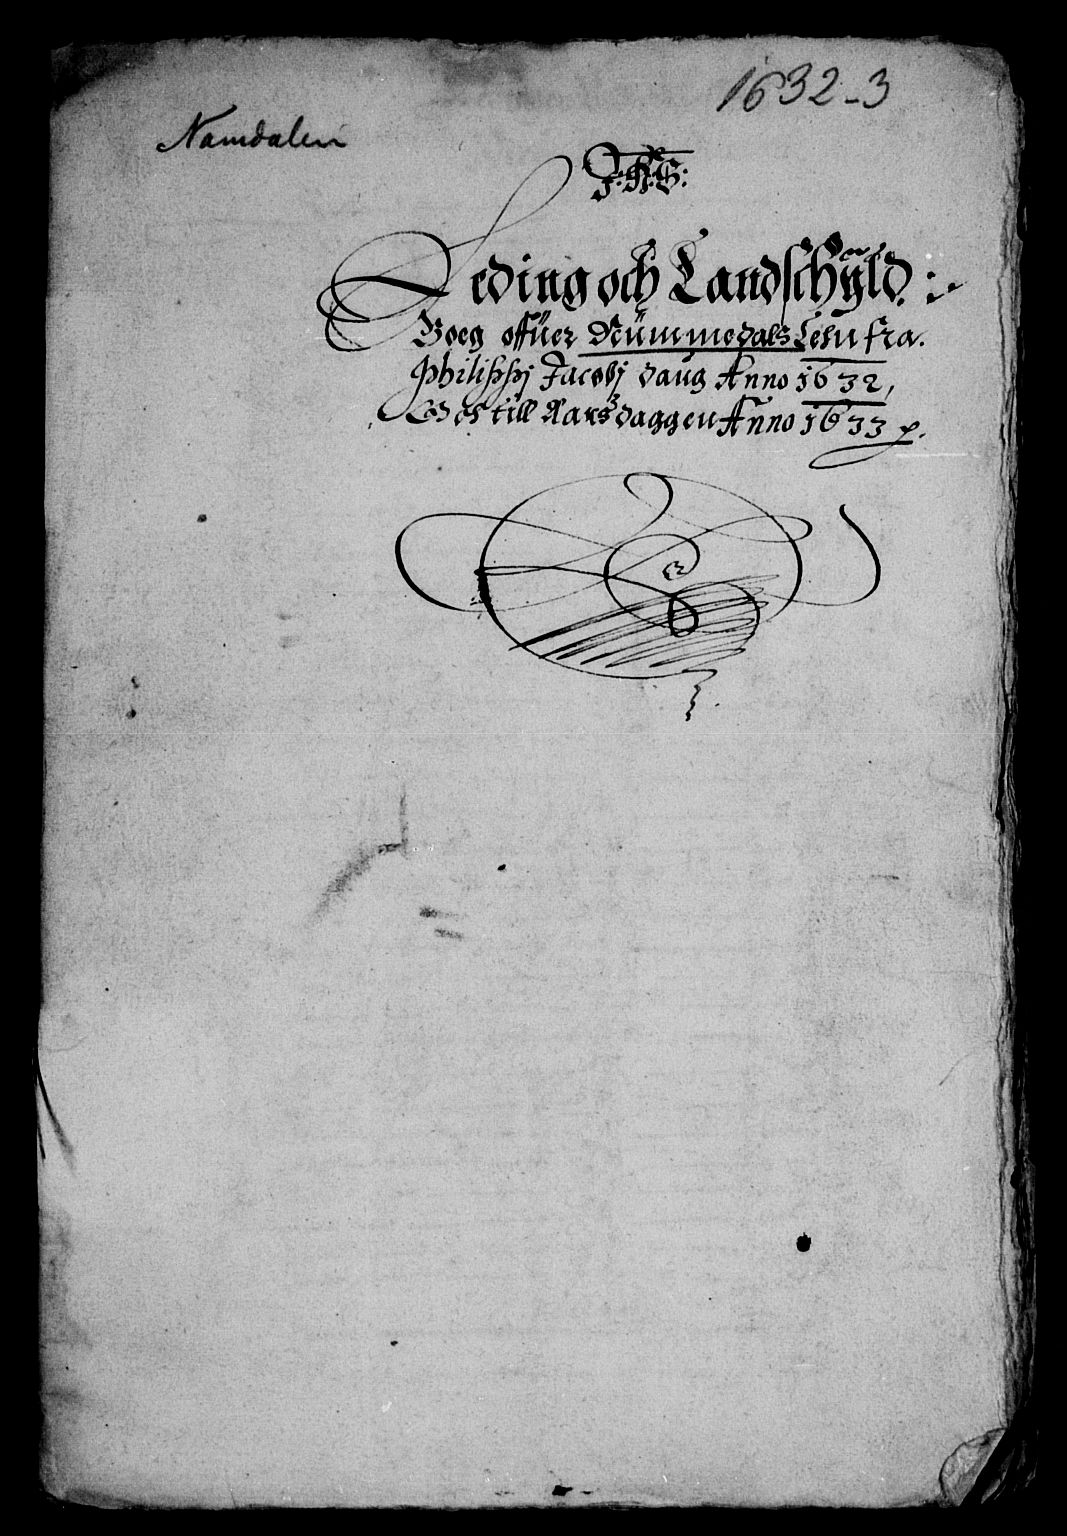 1632-3
Namdalen
J: H: S:
Leding och Landschÿld:
Boeg offüer Nümmedals Lehn fra.
Philippj Jacobj daug Anno 1632,
Och till Aarsdaggen Anno 1633 p.